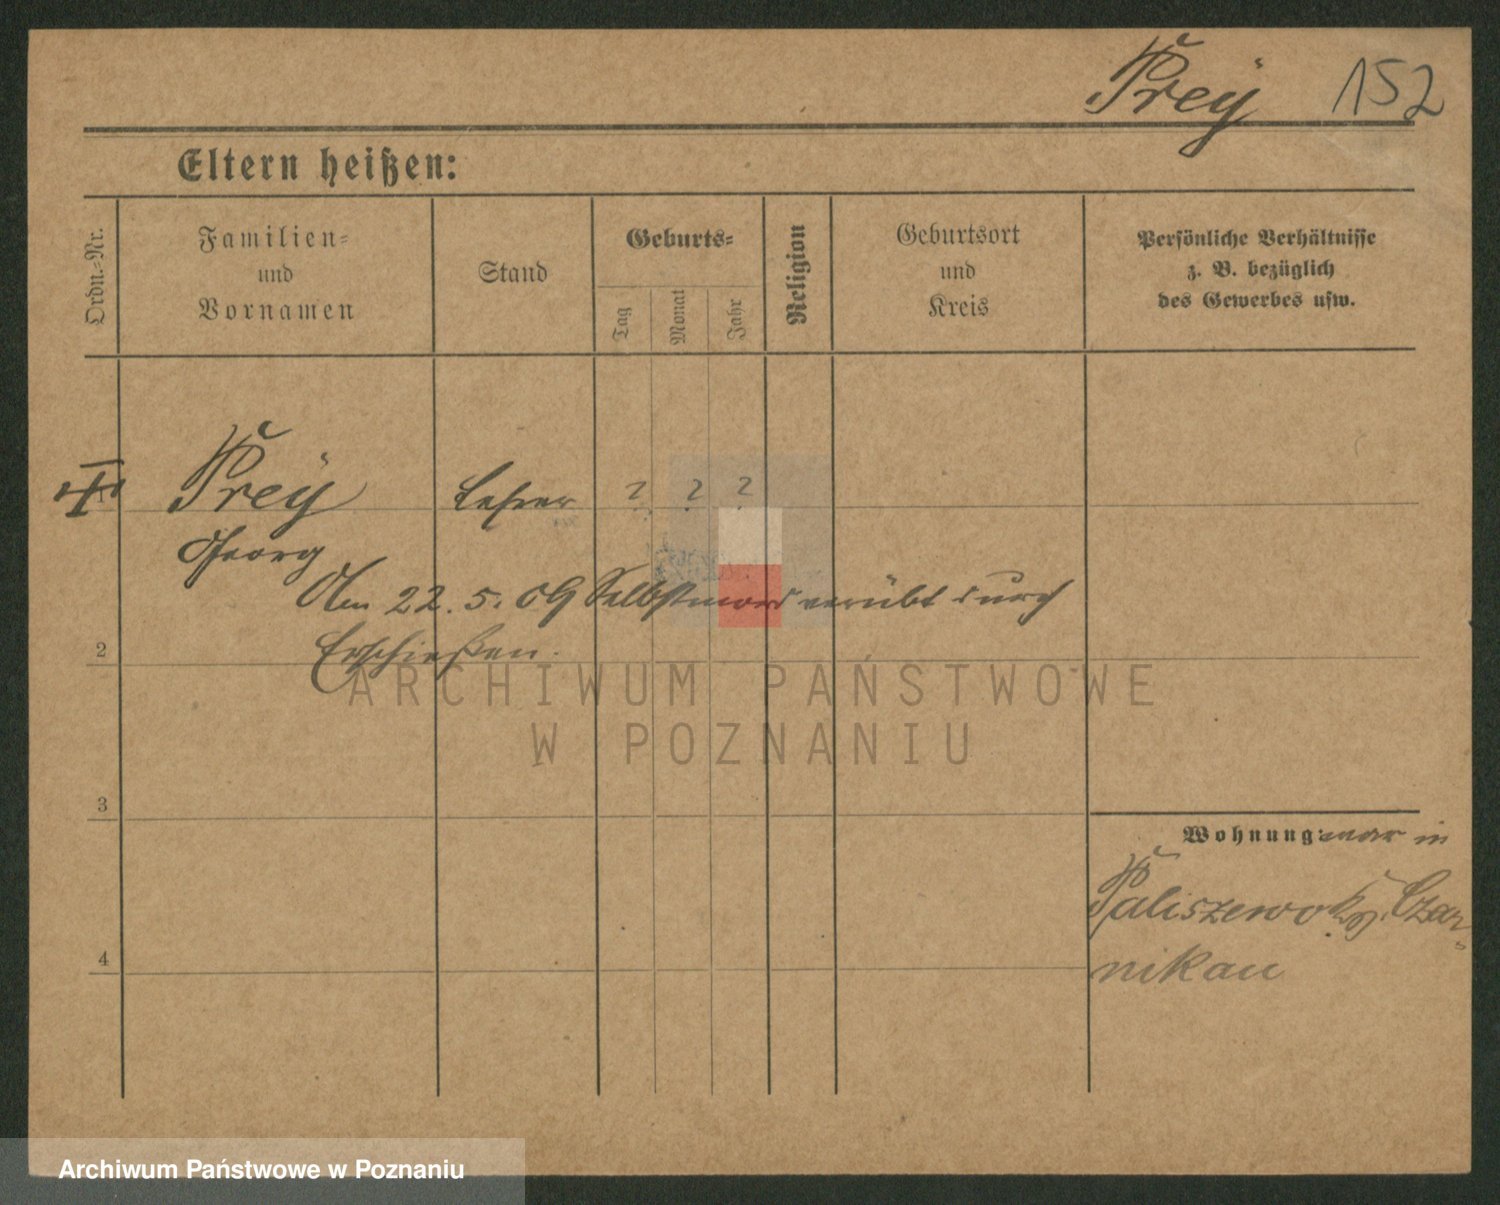 Prey 152
Eltern heißen:
Ordn.-Nr.
Familien-
und
Vornamen
Stand
Geburts-
Tag
Monat
Jahr
Religion
Geburtsort
und
Kreis
Persönliche Verhältnisse
z. B. bezüglich
des Gewerbes usw.
1 Prey Lehrer ? ? ?
Georg
Am 22. 5. 09 Selbstmord verübt durch
2 Erschießen.
ARCHIWUM PAŃSTWOWE
W POZNANIU
3
Wohnung: war in
Paliszewo Kr. Czar-
4 nikau
Archiwum Państwowe w Poznaniu